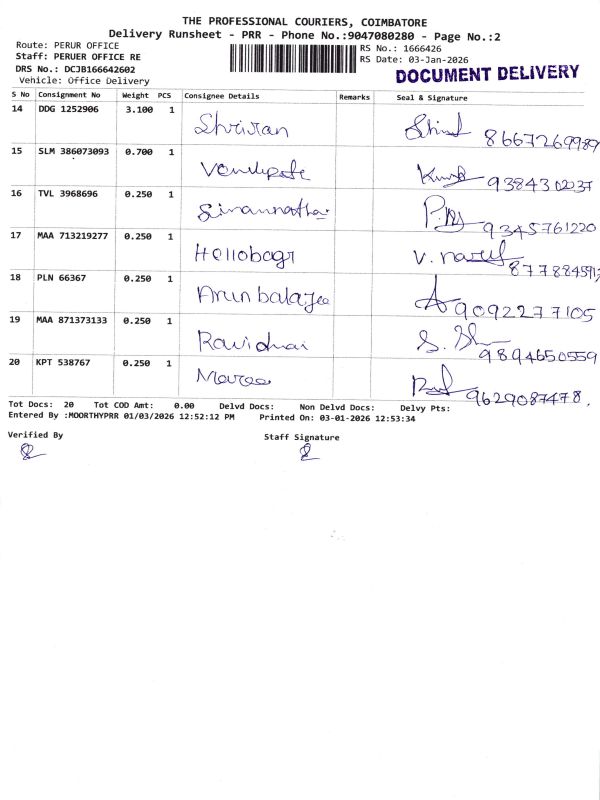 THE PROFESSIONAL COURIERS, COIMBATORE
Delivery Runsheet - PRR - Phone No.:9047080280 - Page No.:2
Route: PERUR OFFICE
Staff: PERUER OFFICE RE
DRS No.: DCJB166642602
Vehicle: Office Delivery
RS No.: 1666426
RS Date: 03-Jan-2026
DOCUMENT DELIVERY
S No Consignment No Weight PCS Consignee Details Remarks Seal & Signature
14 DDG 1252906 3.100 1 8667269989
15 SLM 386073093 0.700 1
16 TVL 3968696 0.250 1 9345761220
17 MAA 713219277 0.250 1 Hellobagi
18 PLN 66367 0.250 1 Arun balajee 9092277105
19 MAA 871373133 0.250 1 9894650559
20 KPT 538767 0.250 1 9629087478.
Tot Docs: 20 Tot COD Amt: 0.00 Delvd Docs: Non Delvd Docs: Delvy Pts:
Entered By :MOORTHYPRR 01/03/2026 12:52:12 PM Printed On: 03-01-2026 12:53:34
Verified By
Staff Signature